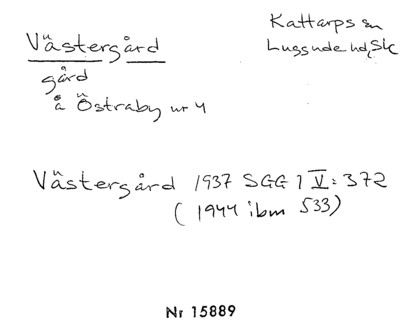 Västergård
gård
å Östraby nr 4
Kattarps sn
Luggude hd, Sk
Västergård 1937 SGG 1 V: 372
(1944 ibm 533)
Nr 15889